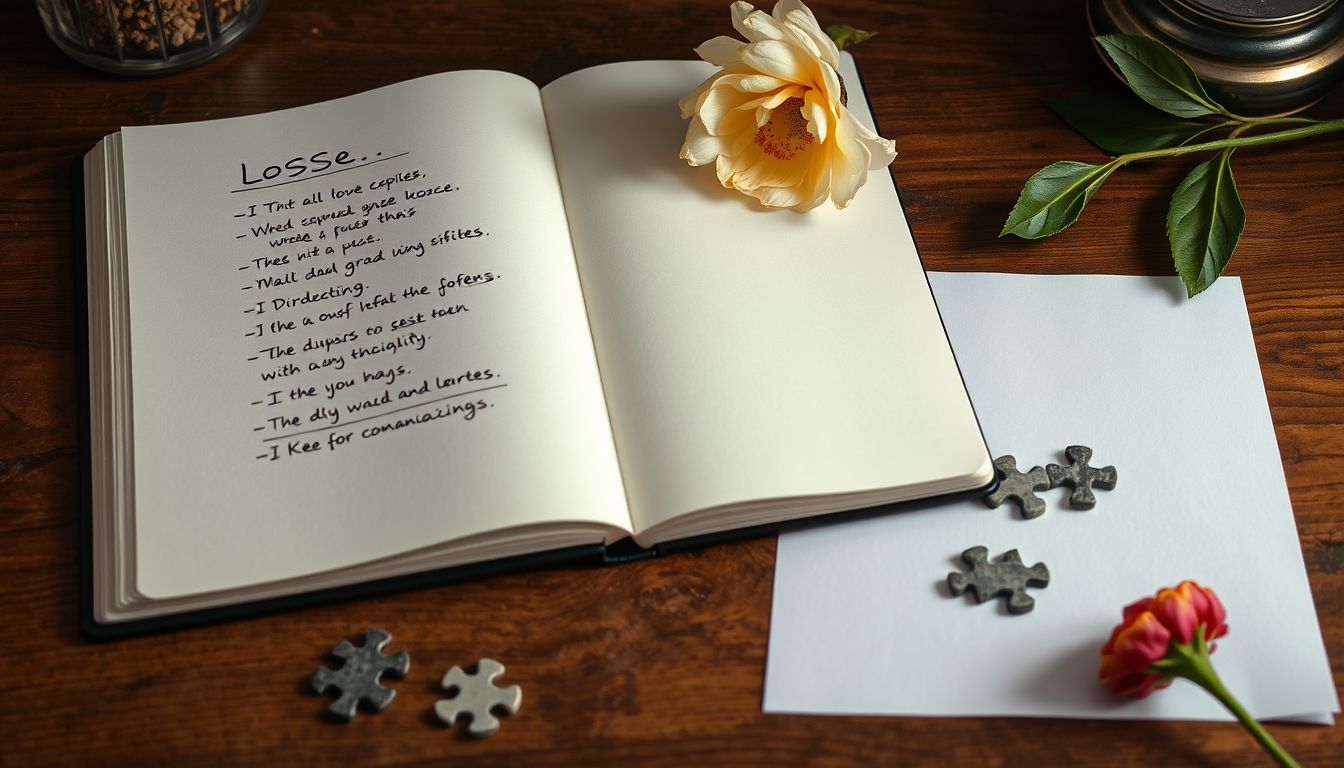 Losse..
- I Tht all love cepiles,
- Wred
wrede a focer thas
- Thes nit a pase.
- Mall dad grad ving sifites.
- I Dirdecting.
- I the a ousf lefat the fofens.
- The dupars to sest toen
with a any thciglity.
- I the you hays.
- The dly waed and lertes.
- I Kee for comaniazings.